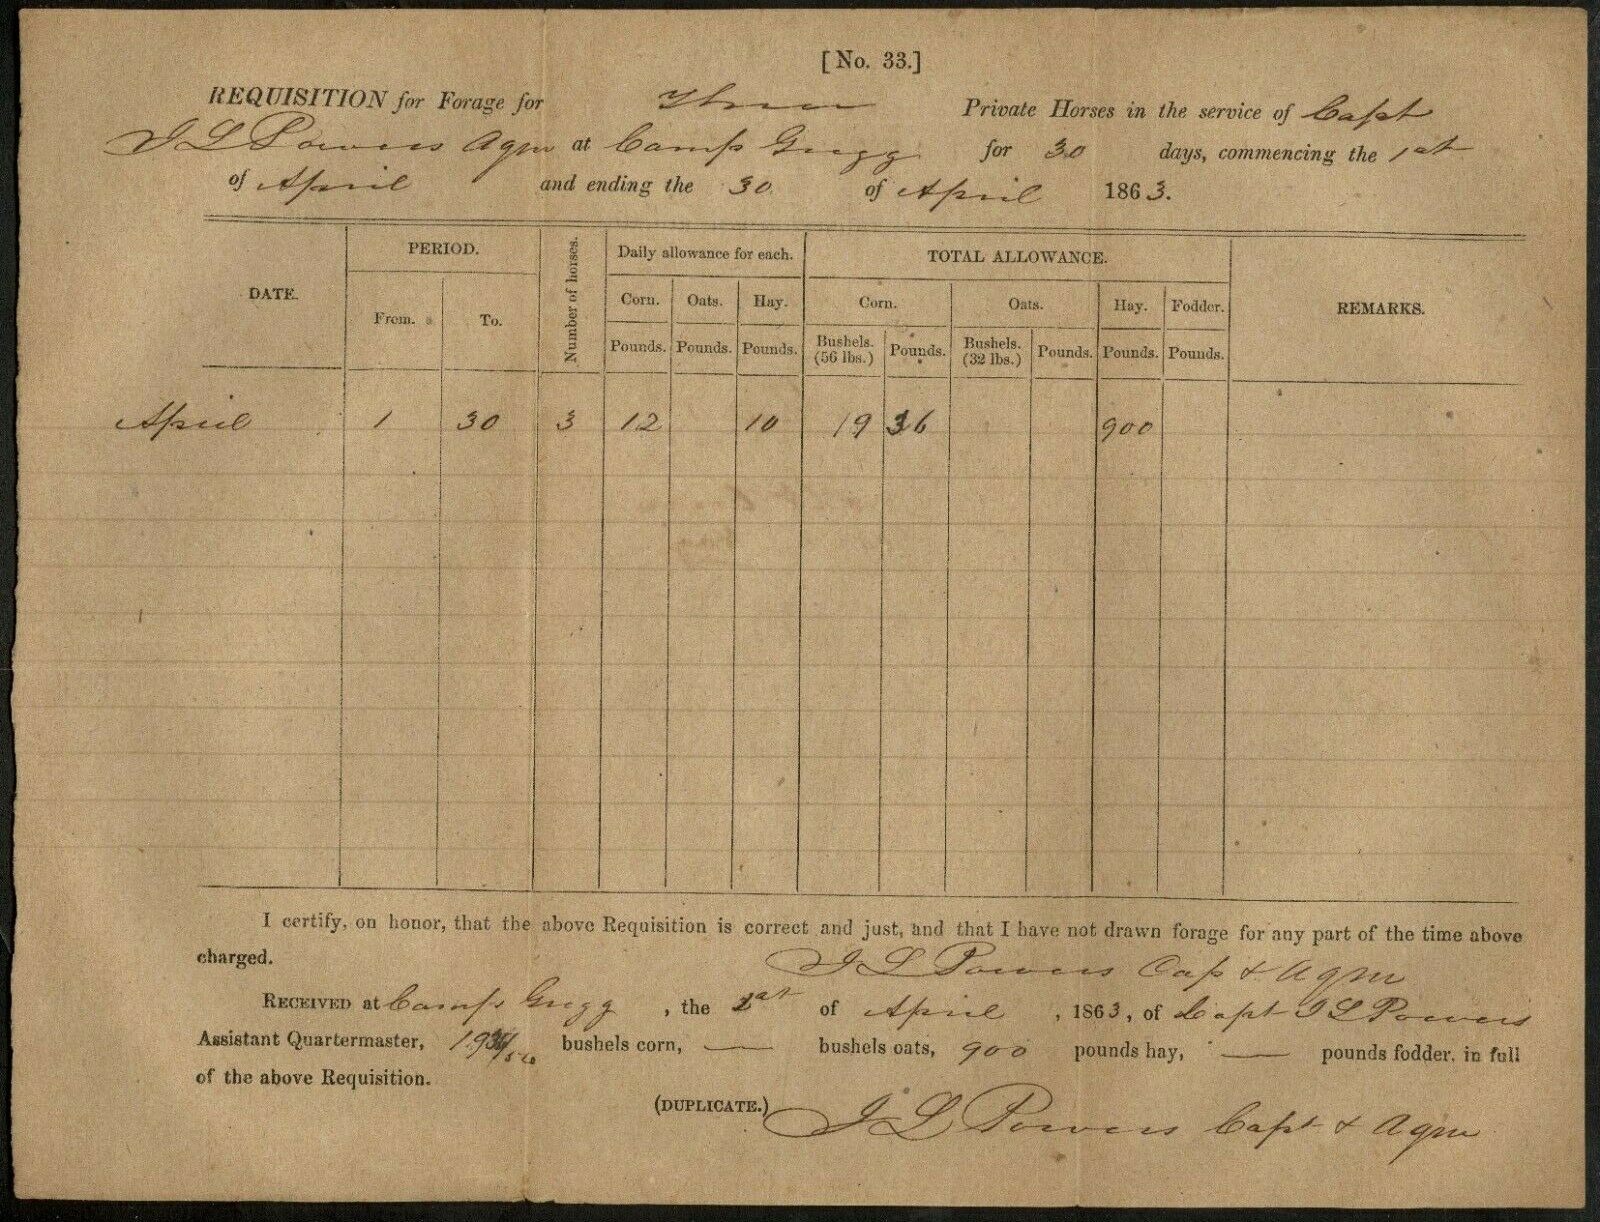 [No. 33.]
REQUISITION for Forage for Three Private Horses in the service of Capt
J L Powers Aqm at Camp Gregg for 30 days, commencing the 1st
of April and ending the 30 of April 1863.
DATE. PERIOD. Number of horses. Daily allowance for each. TOTAL ALLOWANCE. REMARKS.
From. To. Corn. Oats. Hay. Corn. Oats. Hay. Fodder.
Pounds. Pounds. Pounds. Bushels. (56 lbs.) Pounds. Bushels. (32 lbs.) Pounds. Pounds. Pounds.
April 1 30 3 12 10 19 36 900
I certify, on honor, that the above Requisition is correct and just, and that I have not drawn forage for any part of the time above
charged.
J L Powers Cap & Aqm
RECEIVED at Camp Gregg, the 1st of April, 1863, of Capt J L Powers
Assistant Quartermaster, 19 36/56 bushels corn, — bushels oats, 900 pounds hay, — pounds fodder, in full
of the above Requisition.
(DUPLICATE.) J L Powers Capt & Aqm